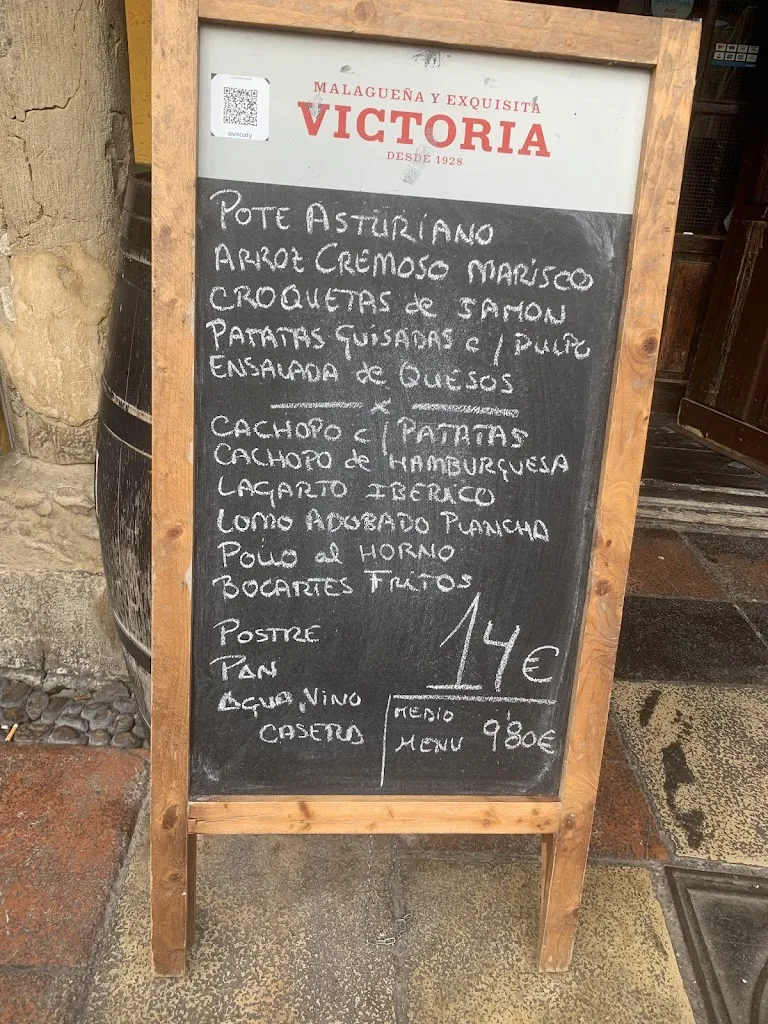 MALAGUEÑA Y EXQUISITA
VICTORIA
DESDE 1928
avocaty
POTE ASTURIANO
ARROZ CREMOSO MARISCO
CROQUETAS de JAMON
PATATAS GUISADAS c/ PULPO
ENSALADA de QUESOS
x
CACHOPO c/ PATATAS
CACHOPO de HAMBURGUESA
LAGARTO IBERICO
LOMO ADOBADO PLANCHA
POLLO al HORNO
BOCARTES FRITOS
POSTRE
PAN
AGUA, VINO
CASERA
14€
MEDIO
MENU 9'80€